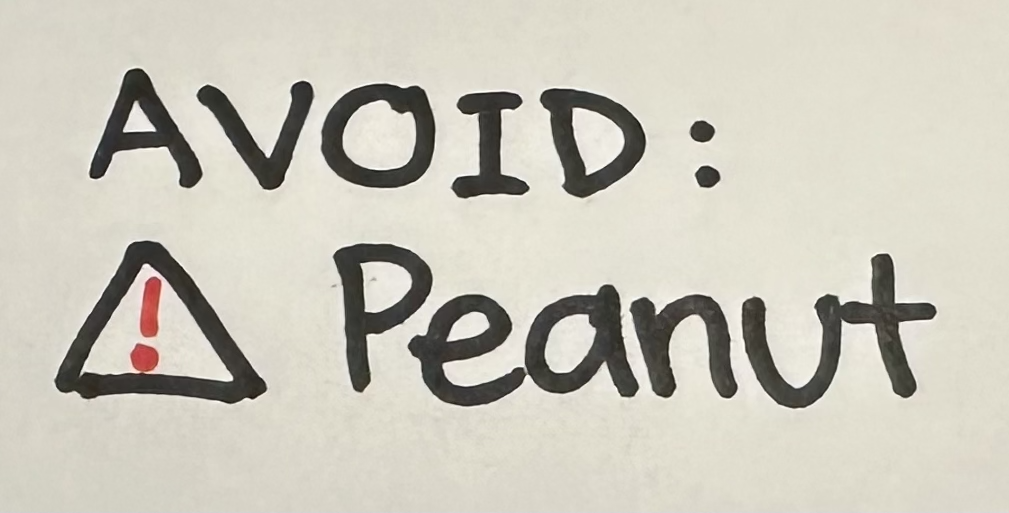 AVOID:
⚠ Peanut